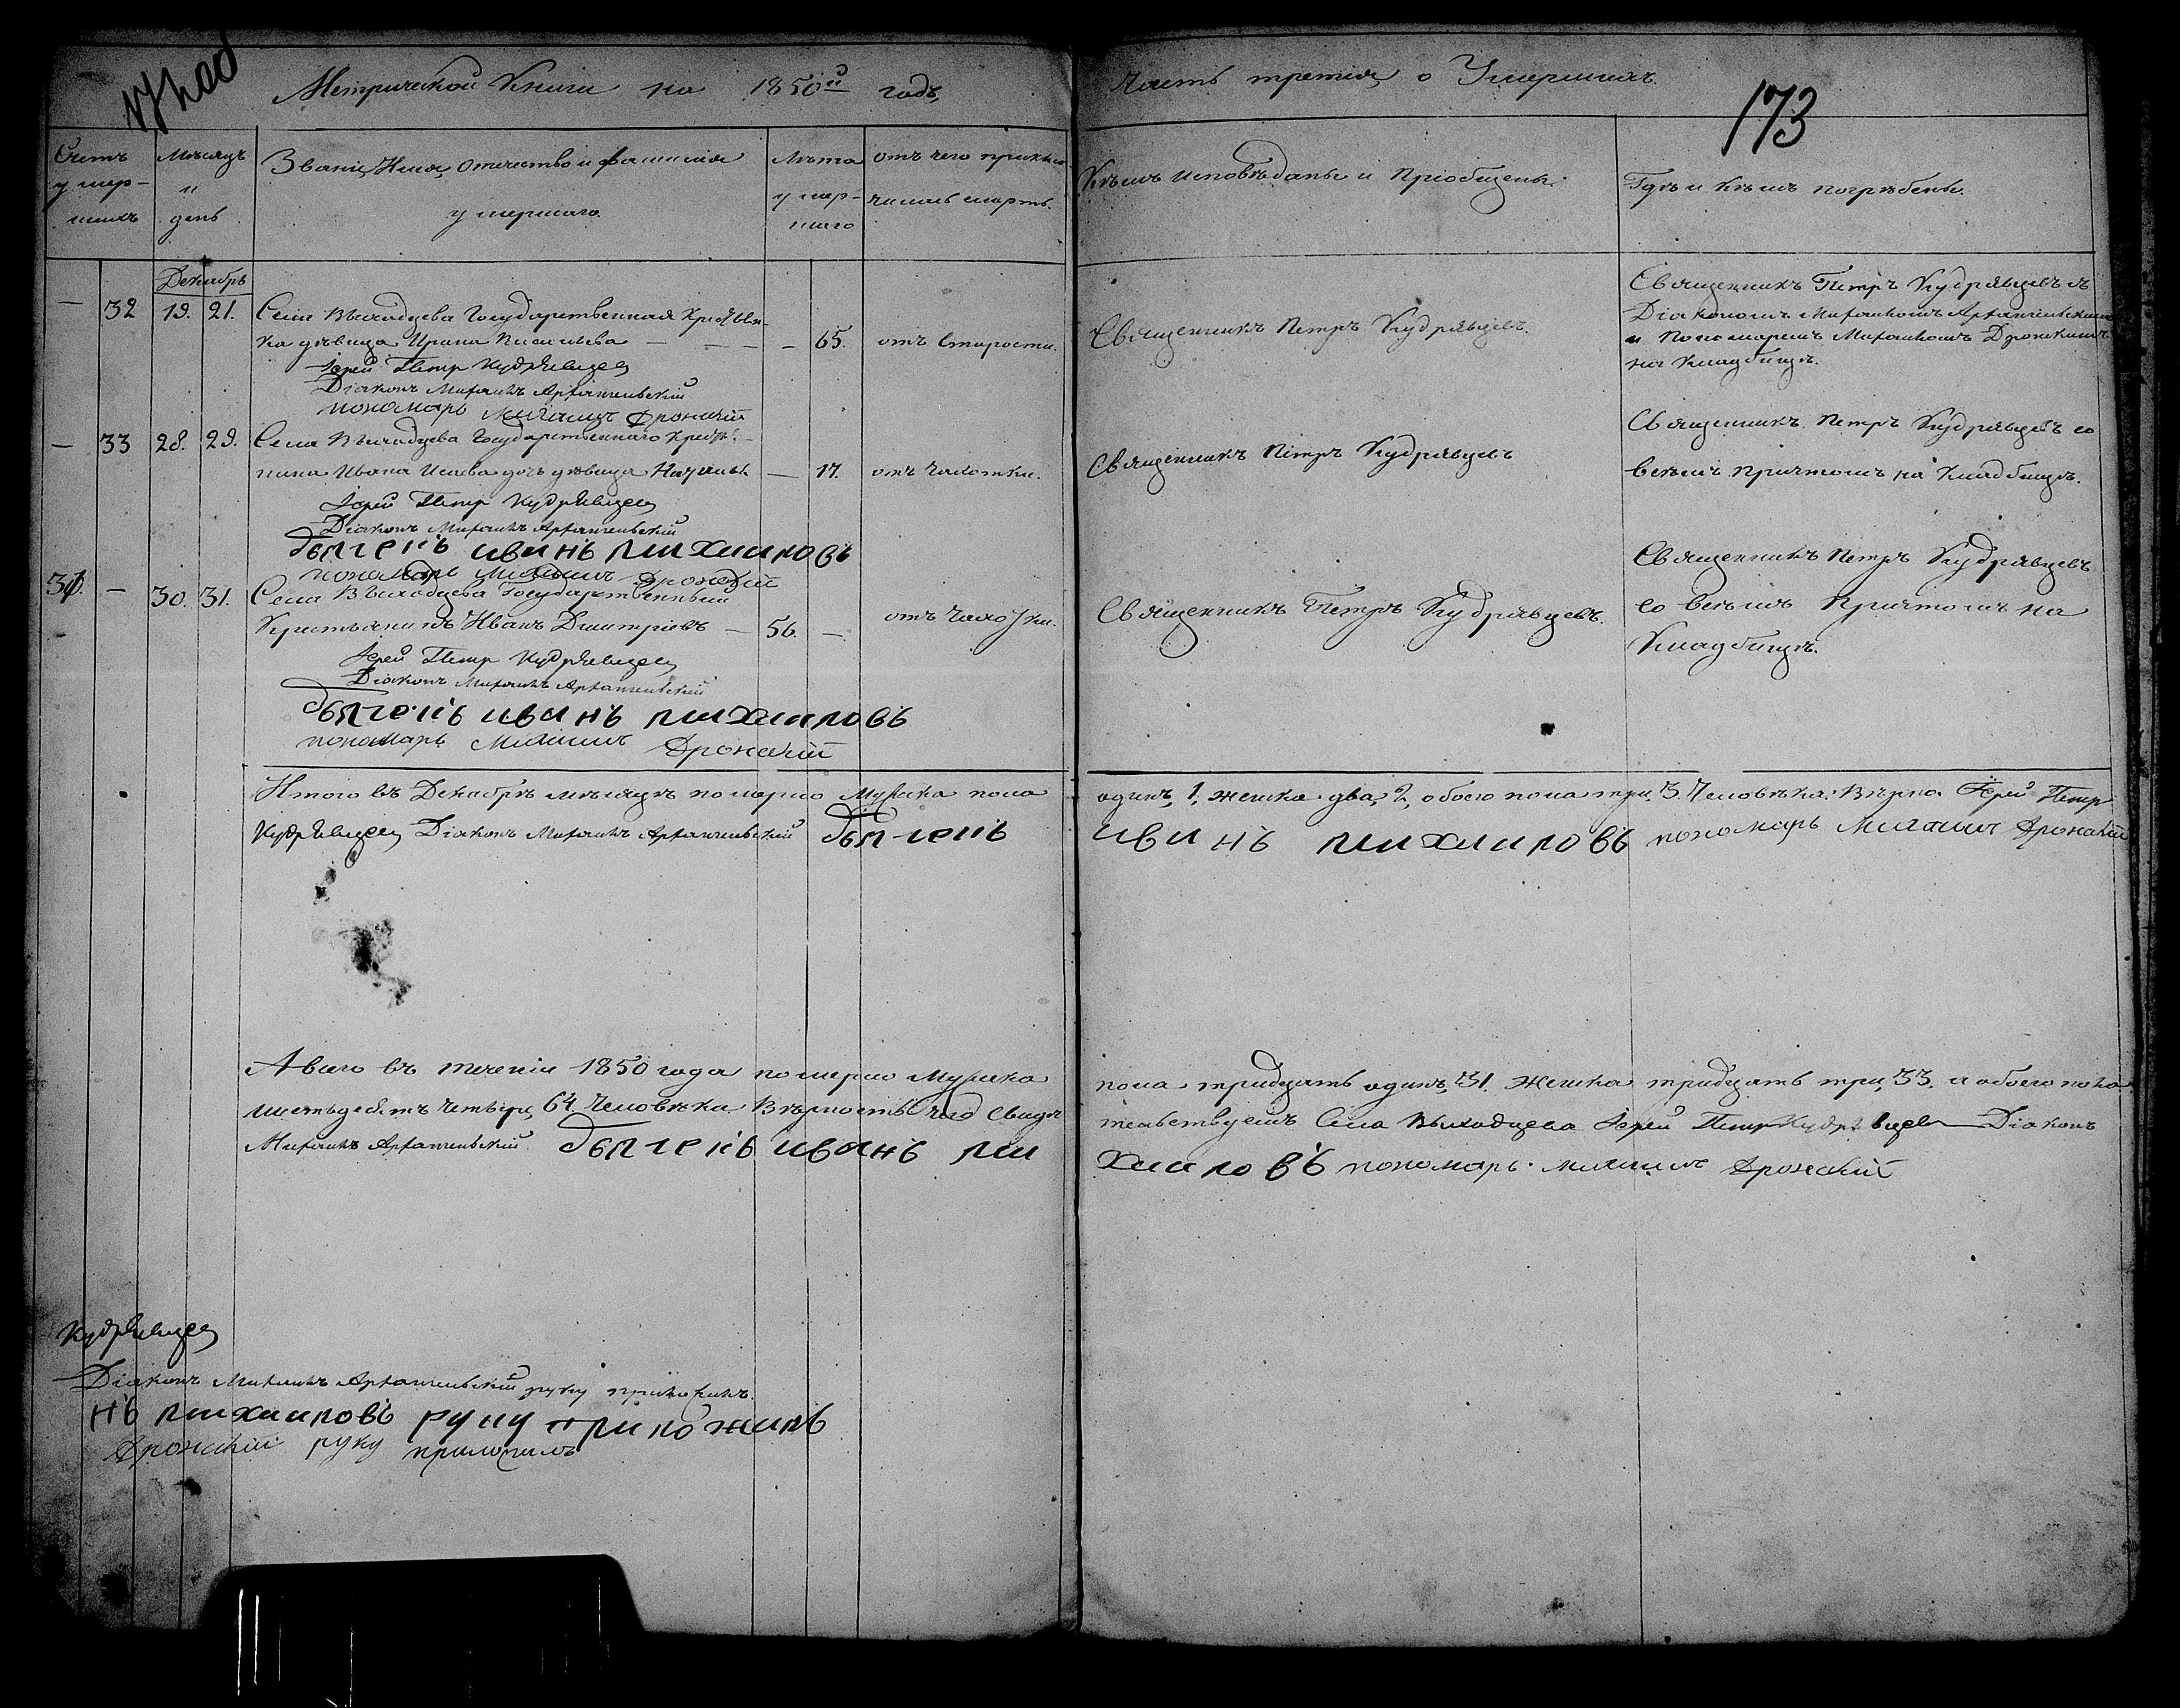 Метрической Книги на 1850й годъ,
Часть третія, о Умершихъ.
173
Счетъ умер-шихъ
Мѣсяцъ и день
Званіе, Имя, Отечество и фамилія умершаго.
Лѣта умер-шаго
отъ чего приключилась смерть.
Кѣмъ исповѣданы и пріобщены.
Гдѣ и кѣмъ погребены.
Декабрь
— 32 19. 21. Села Выходцева Государственная Крестьян-
ка дѣвица Ирина — — — — 65. отъ Старости.
Іерей Петр Кудрявцев
Діаконъ Михаилъ Архангельскій
пономарь Михаилъ Дронскій
Священникъ Петръ Кудрявцевъ.
Священникъ Петръ Кудрявцевъ съ
Діакономъ Михаиломъ Архангельскимъ
и Пономаремъ Михаиломъ Дронскимъ
на Кладбищѣ.
— 33 28. 29. Села Выходцева Государственнаго Кресть-
нина Ивана Исаева дочь дѣвица — 17. отъ Чахотки.
Іерей Петр Кудрявцев
Діаконъ Михаилъ Архангельскій
дьячекъ иванъ михаиловъ
пономарь Михаилъ Дронскій
Священникъ Петръ Кудрявцевъ
Священникъ Петръ Кудрявцевъ со
всѣмъ причтомъ на Кладбищѣ.
31. — 30. 31. Села Выходцева Государственный
Крестьянинъ Иванъ Дмитріевъ — 56. — отъ Чахотки.
Іерей Петр Кудрявцев
Діаконъ Михаилъ Архангельскій
дьячекъ иванъ михаиловъ
пономарь Михаилъ Дронскій
Священникъ Петръ Кудрявцевъ.
Священникъ Петръ Кудрявцевъ
со всѣмъ Причтомъ на
Кладбищѣ.
Итого въ Декабрѣ мѣсяцѣ померло Мужска пола одинъ, 1, женска два, 2, обоего пола три, 3. Человѣка. Вѣрно. Іерей Петр
Кудрявцев Діаконъ Михаилъ Архангельскій дьячекъ иванъ михаиловъ пономарь Михаилъ Дронскій
А всего въ теченіи 1850 года померло Мужска пола тридцать одинъ, 31. Женска тридцать три, 33. а обоего пола
шестьдесятъ четыре, 64. Человѣка. Вѣрность чего Свидѣтельствуемъ Села Выходцева Іерей Петр Кудрявцев Діаконъ
Михаилъ Архангельскій дьячекъ иванъ михаиловъ пономарь Михаилъ Дронскій
Кудрявцев
Діаконъ Михаилъ Архангельскій руку приложилъ.
нъ михаиловъ руку приложилъ
Дронскій руку приложилъ